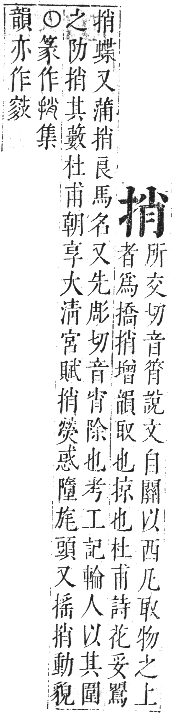 捎
所交切音筲說文自關以西凡取物之上
者爲撟捎增韻取也掠也杜甫詩花妥鶯
捎蝶又蒲捎良馬名又先彫切音宵除也考工記輪人以其圍
之阞捎其藪杜甫朝享大清宮賦捎熒惑墮旄頭又搖捎動貌
○篆作集
韻亦作